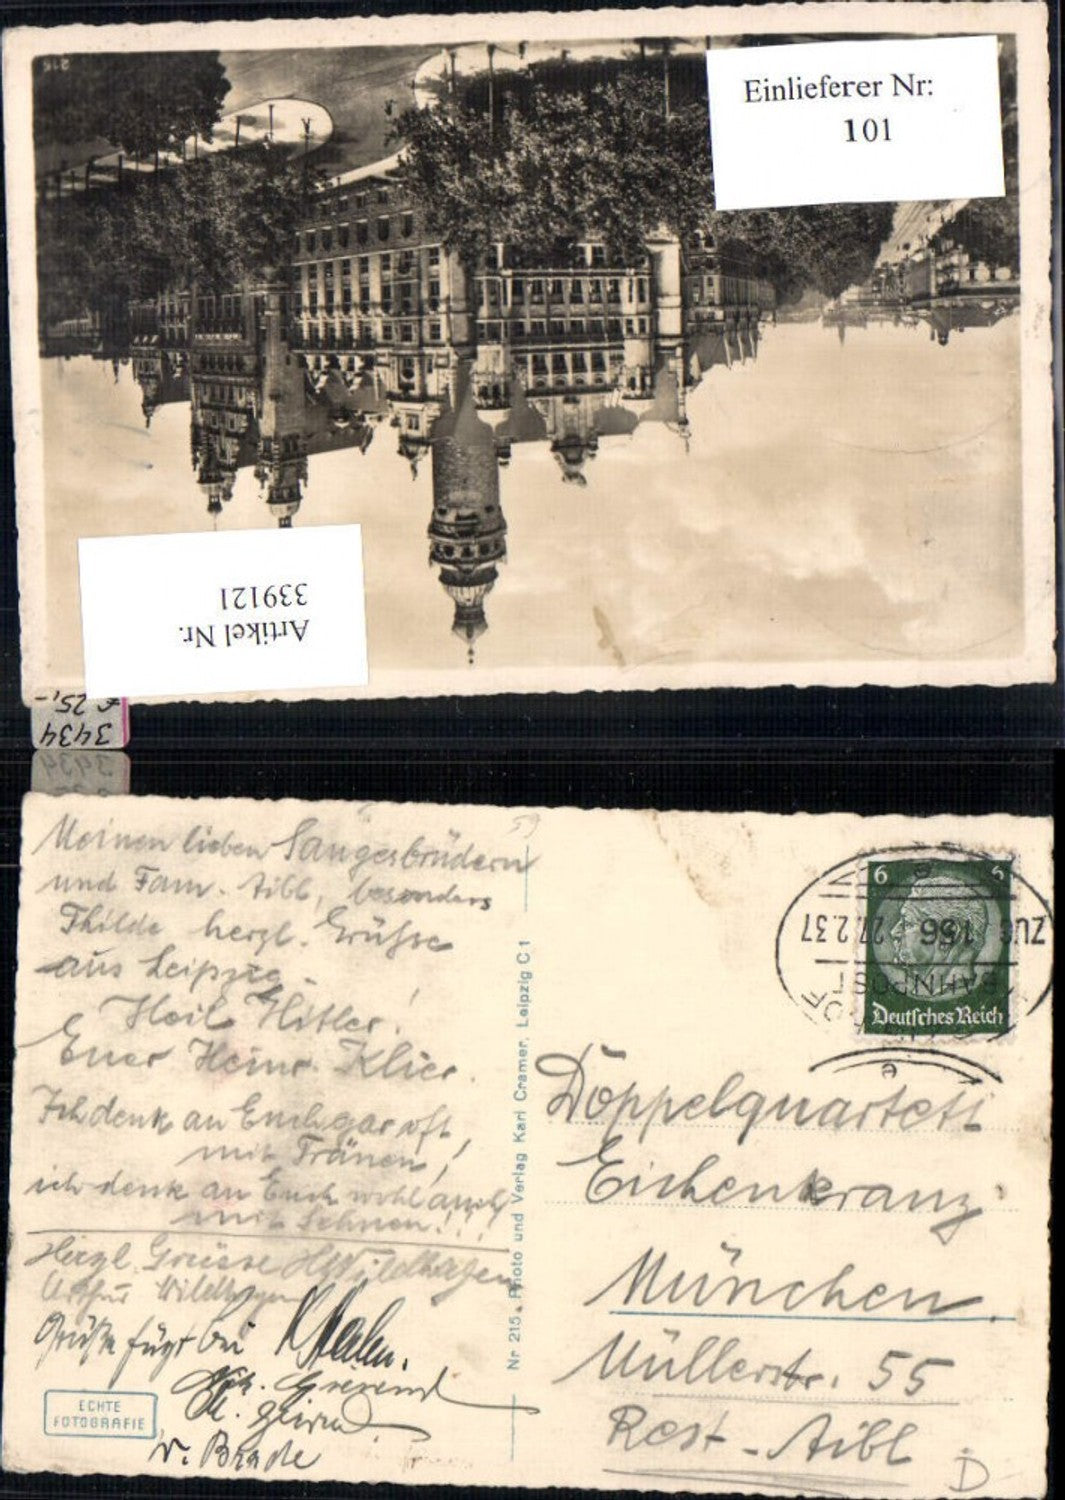 216
Einlieferer Nr:
101
Artikel Nr.
339121
€ 25,-
3434
Meinen lieben Sangesbrüdern
und Fam. Aibl, besonders
Thilde herzl. Grüsse
aus Leipzig.
Heil Hitler!
Euer Heinr. Klier.
Ich denk an Euch gar oft
mit Tränen!
ich denk an Euch wohl auch
mit Sehnen!!!
Herzl. Grüsse
Arthur
Grüße fügt bei
v. Brade
ECHTE
FOTOGRAFIE
Nr 215. Photo und Verlag Karl Cramer, Leipzig C 1
59
6 6
Deutsches Reich
BAHNPOST
ZUG 156 27.2.37
HOF
e
Doppelquartett
Eichenkranz
München.
Müllerstr. 55
Rest. Aibl
D